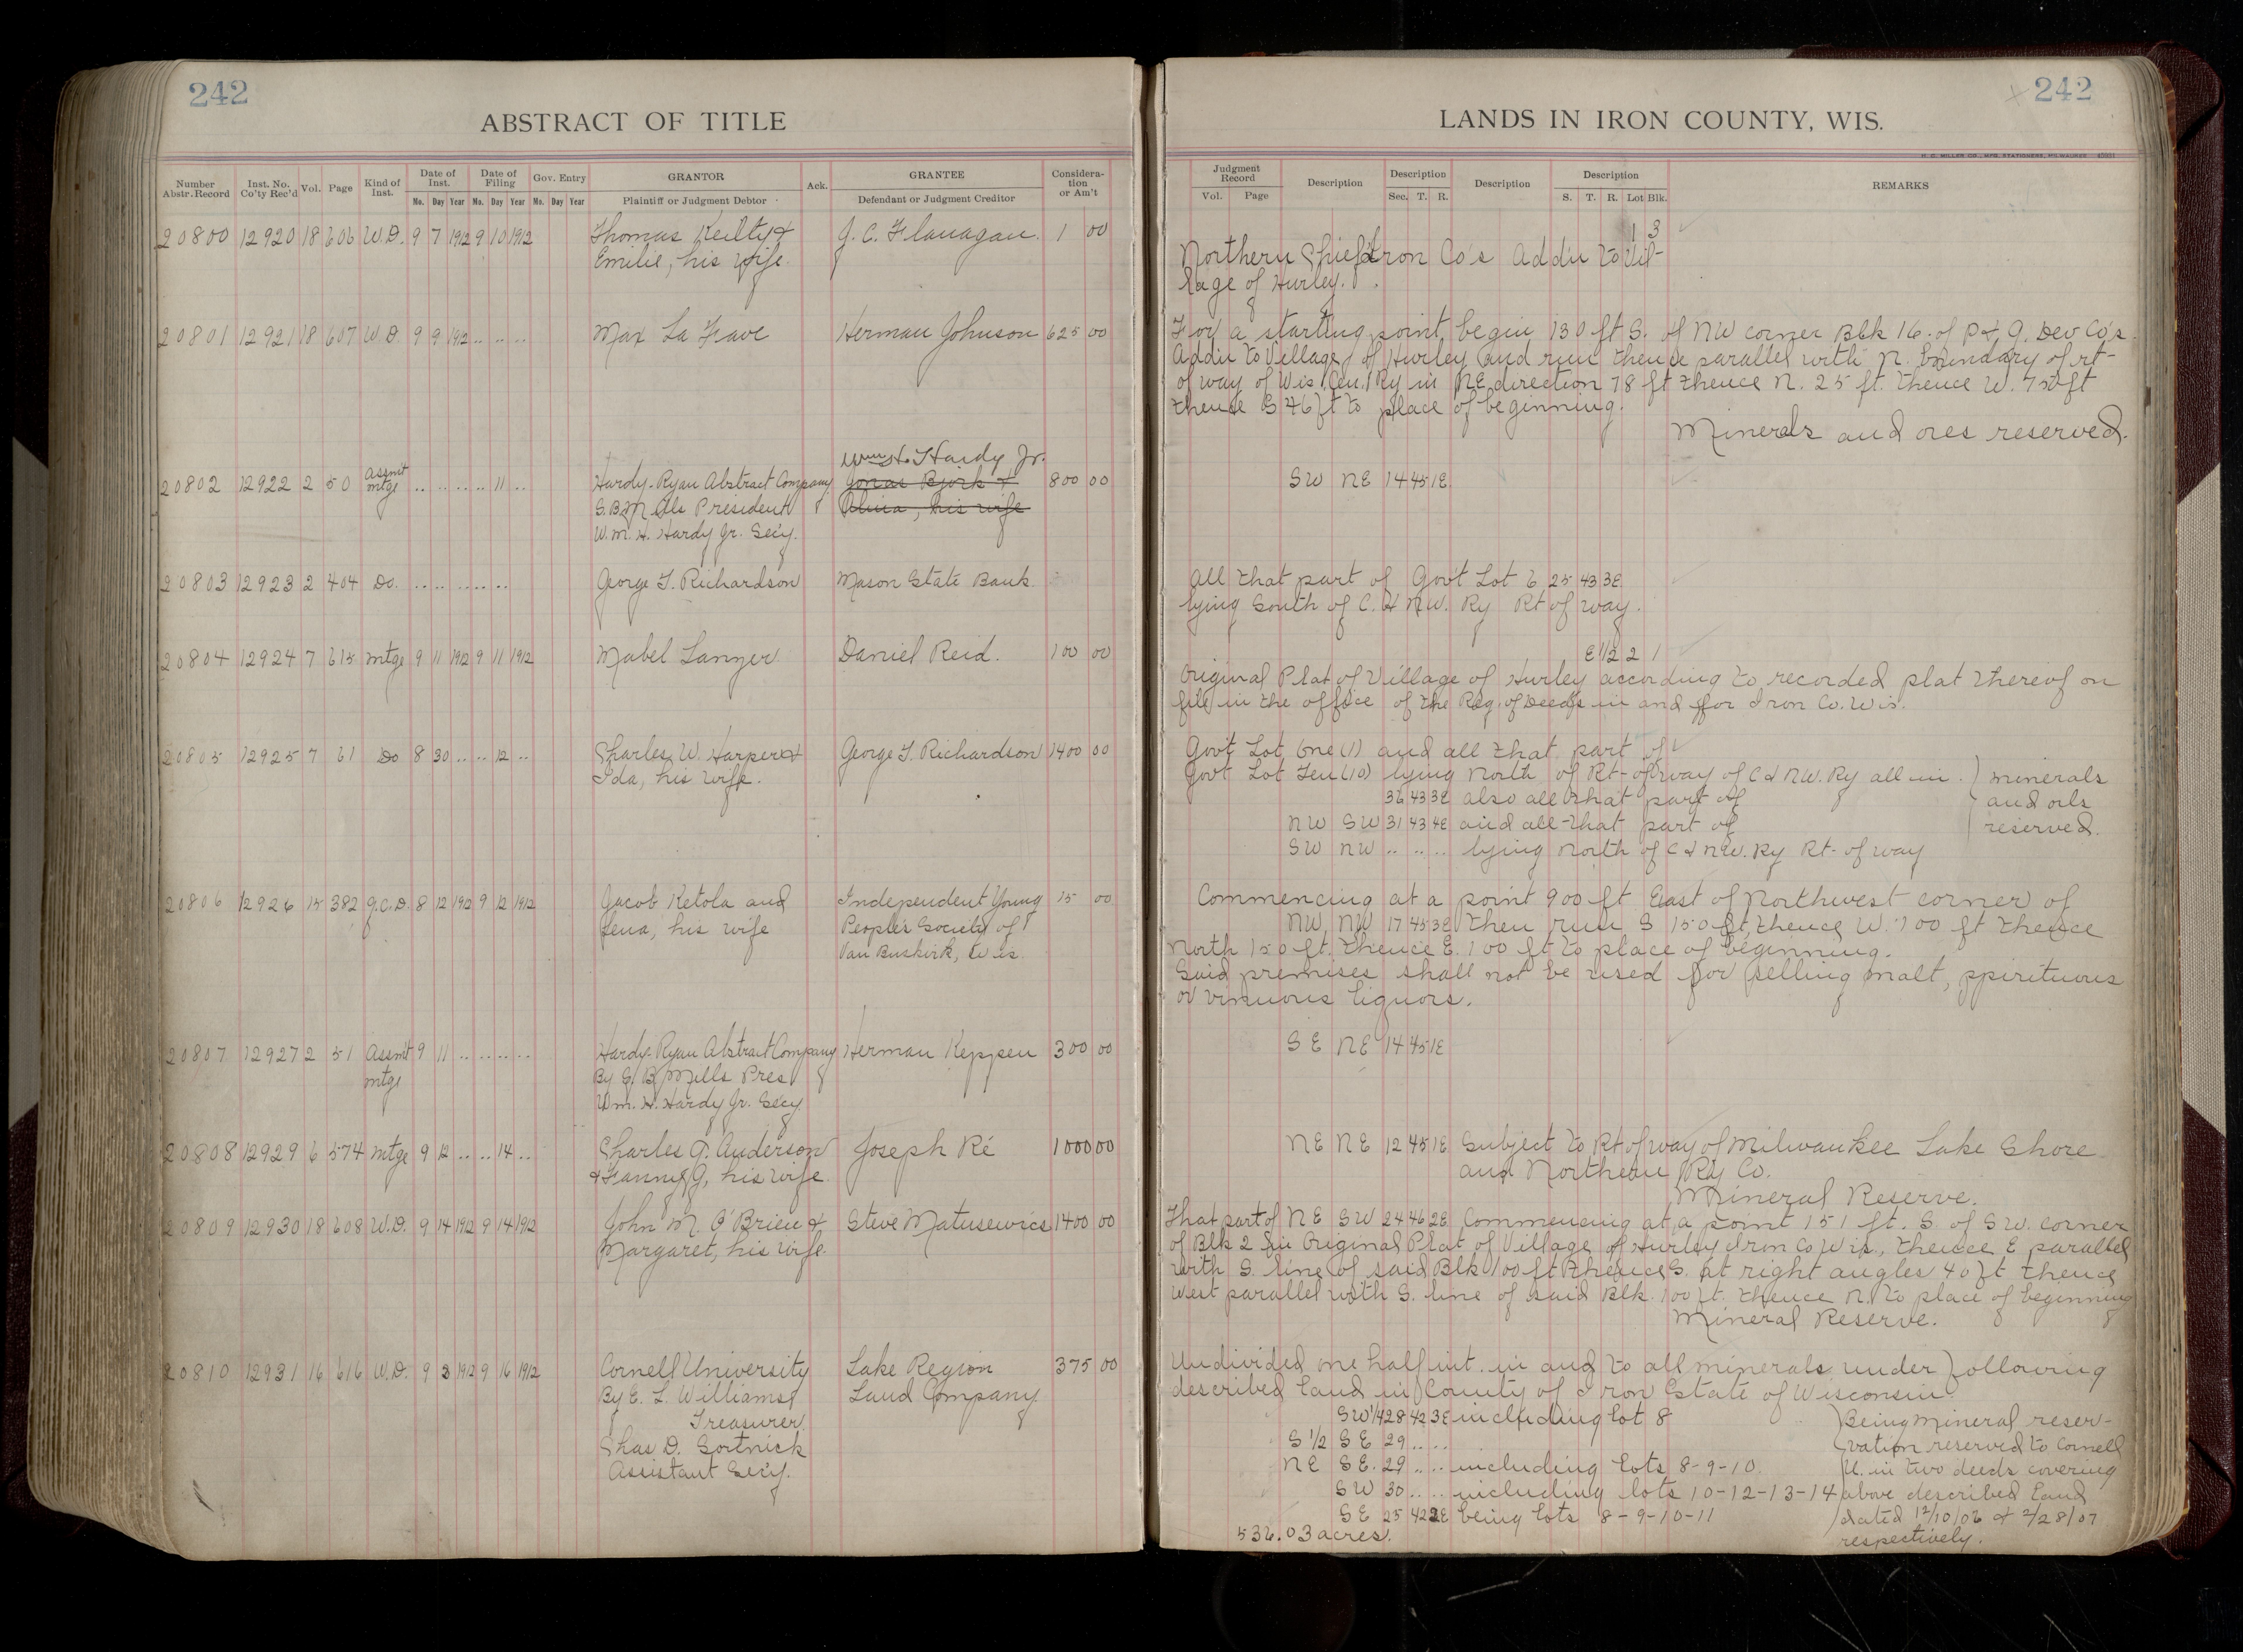 242
ABSTRACT OF TITLE
Number Abstr. Record | Inst. No. Co'ty Rec'd | Vol. | Page | Kind of Inst. | Date of Inst. Mo. Day Year | Date of Filing Mo. Day Year | Gov. Entry Mo. Day Year | GRANTOR Plaintiff or Judgment Debtor | Ack. | GRANTEE Defendant or Judgment Creditor | Consideration or Am't
20800 12920 18 606 W.D. 9 7 1912 9 10 1912 Thomas Reilty & J. C. Flanagan. 1 00
Emilie, his wife.
20801 12921 18 607 W.D. 9 9 1912 .. .. .. Max La Fave Herman Johnson 625 00
Wm H. Hardy Jr.
20802 12922 2 50 Assmt mtge .. .. .. .. 11 .. Hardy-Ryan Abstract Company Jonas Bjork & 800 00
S. B. Mills President Alina, his wife
W.M. H. Hardy Jr. Secy.
20803 12923 2 404 Do. .. .. .. .. .. George T. Richardson Mason State Bank
20804 12924 7 615 Mtge 9 11 1912 9 11 1912 Mabel Lanyer Daniel Reid. 100 00
20805 12925 7 61 Do 8 30 .. .. 12 .. Charles W. Harper & George T. Richardson 1400 00
Ida, his wife.
20806 12926 15 382 Q.C.D. 8 12 1912 9 12 1912 Jacob Ketola and Independent Young 15 00
Lena, his wife People's Society of
Van Buskirk, Wis.
20807 12927 2 51 Assmt 9 11 .. .. .. .. Hardy-Ryan Abstract Company Herman Keppen 300 00
mtge By S. B. Mills Pres.
Wm. H. Hardy Jr. Secy.
20808 12929 6 574 Mtge 9 12 .. .. 14 .. Charles J. Anderson Joseph Ré 1000 00
& Fanny G, his wife.
20809 12930 18 608 W.D. 9 14 1912 9 14 1912 John M. O'Brien & Steve Matusewics 1400 00
Margaret, his wife.
20810 12931 16 616 W.D. 9 3 1912 9 16 1912 Cornell University Lake Region 375 00
By E. L. Williams Land Company.
Treasurer
Chas D. Bostwick
Assistant Secy.
242
LANDS IN IRON COUNTY, WIS.
H. C. MILLER CO., MFG. STATIONERS, MILWAUKEE
Judgment Record Vol. Page | Description | Description Sec. T. R. | Description | Description S. T. R. Lot Blk. | REMARKS
1 3
Northern Chief Iron Co's Addn to Vil-
lage of Hurley.
For a starting point begin 130 ft S. of NW corner Blk 16 of P & G. Dev Co's
Addn to Village of Hurley and run thence parallel with N. boundary of rt-
of way of Wis. Cen. Ry in NE direction 78 ft thence N. 25 ft. thence W. 75 ft
thence S 46 ft to place of beginning.
Minerals and ores reserved.
SW NE 14 45 1E
All that part of Gov't Lot 6 25 43 3E
lying South of C. & N.W. Ry Rt of way.
E 1/2 2 1
Original Plat of Village of Hurley according to recorded plat thereof on
file in the office of the Reg. of Deeds in and for Iron Co. Wis.
Gov't Lot One (1) and all that part of
Gov't Lot Ten (10) lying North of Rt-of way of C & N.W. Ry all in minerals
36 43 3E also all that part of and oils
NW SW 31 43 4E and all that part of reserved.
SW NW .. .. .. lying North of C & N.W. Ry Rt- of way
Commencing at a point 900 ft East of Northwest corner of
NW NW 17 45 3E then run S 150 ft, thence W. 100 ft thence
North 150 ft. thence E. 100 ft to place of beginning.
Said premises shall not be used for selling malt, spirituous
or vinuous liquors.
SE NE 14 45 1E
NE NE 12 45 1E Subject to Rt of way of Milwaukee Lake Shore
and Northern Ry Co.
Mineral Reserve.
That part of NE SW 24 46 2E Commencing at a point 151 ft. S. of SW. corner
of Blk 2 in Original Plat of Village of Hurley Iron Co Wis., thence E parallel
with S. line of said Blk 100 ft thence S. at right angles 40 ft thence
West parallel with S. line of said Blk. 100 ft. thence N. to place of beginning
Mineral Reserve.
Undivided one half int. in and to all minerals under following
described land in County of Iron State of Wisconsin
SW 1/4 28 42 3E including lot 8 Being Mineral reser-
S 1/2 SE 29 .. .. vation reserved to Cornell
NE SE. 29 .. .. including lots 8-9-10. U. in two deeds covering
SW 30 .. .. including lots 10-12-13-14 above described land
SE 25 42 2E being lots 8-9-10-11 dated 12/10/06 & 2/28/07
536.03 acres. respectively.